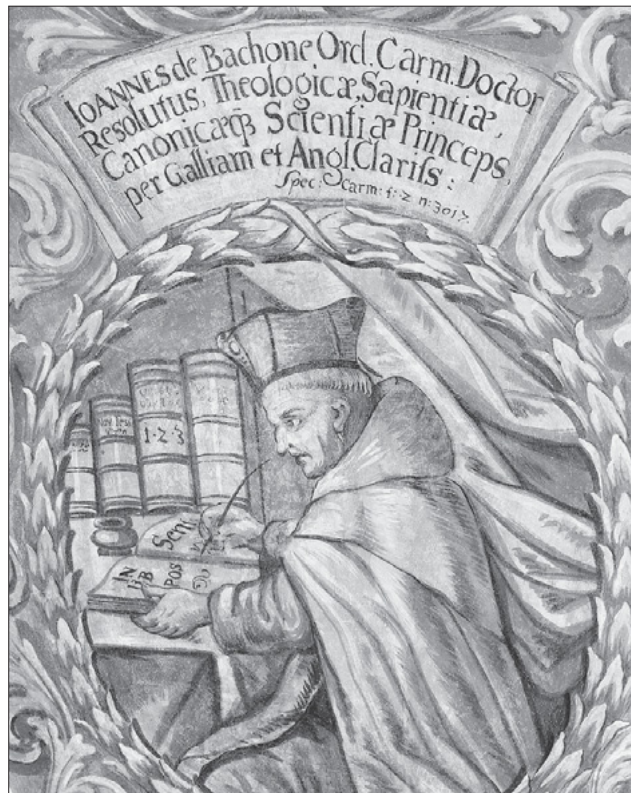 IOANNES de Bachone Ord. Carm. Doctor
Resolutus, Theologicæ, Sapientiæ,
Canonicæq3 Scientiæ Princeps,
per Galliam et Angl. Clariſs:
Spec: Carm: f: 2 n: 3017
1·2·3
Sen
IN
LIB
POS